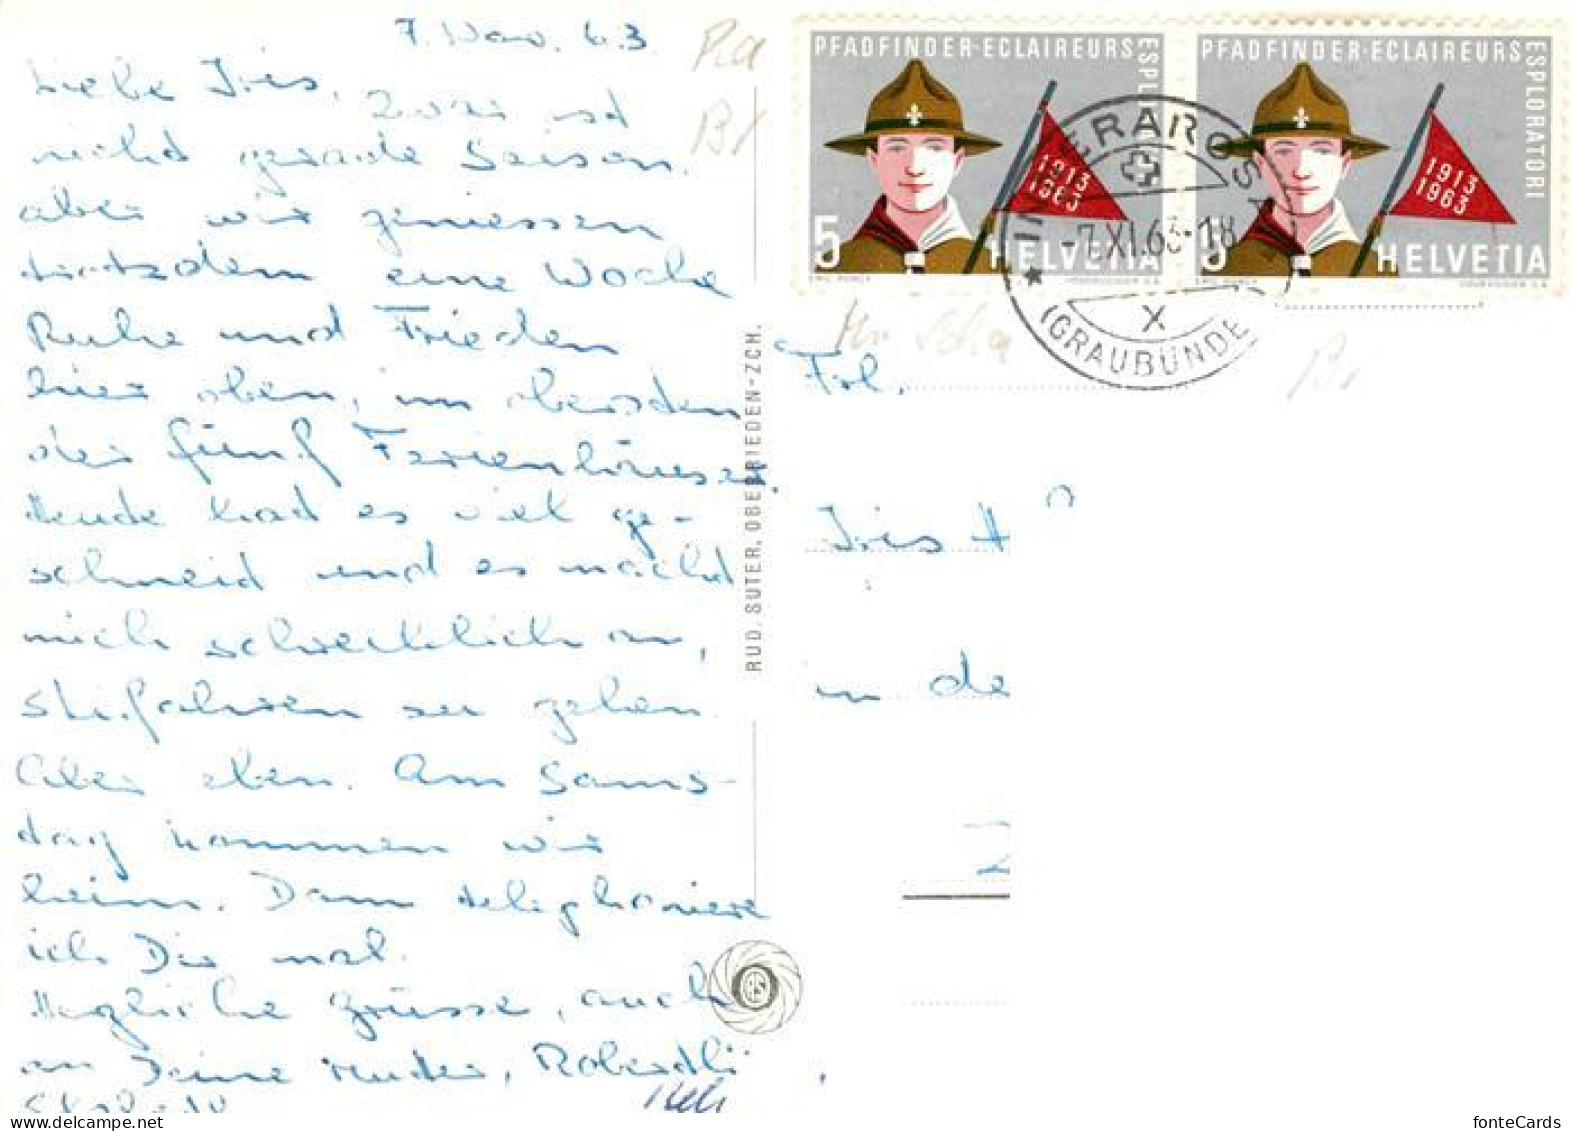 7. Nov. 63
Liebe Iris,
Zwar ist
nicht gerade Saison,
aber wir geniessen
trotzdem eine Woche
Ruhe und Frieden
hier oben, im obersten
der fünf Ferienhäuser.
Heute hat es viel ge-
schneit und es macht
mich schrecklich an,
skifahren zu gehen.
Aber eben. Am Sams-
tag kommen wir
heim. Dann telephoniere
ich Dir mal.
Herzliche Grüsse, auch
an Deine Mutter,
RUD. SUTER, OBERRIEDEN-ZCH.
PFADFINDER-ECLAIREURS
ESPLORATORI
1913
1963
5 HELVETIA
COURVOISIER S.A.
PFADFINDER-ECLAIREURS
ESPLORATORI
1913
1963
5 HELVETIA
COURVOISIER S.A.
INNERAROSA
-7.XI.63-18
X
(GRAUBÜNDEN)
Frl.
Iris H
in de
fonteCards